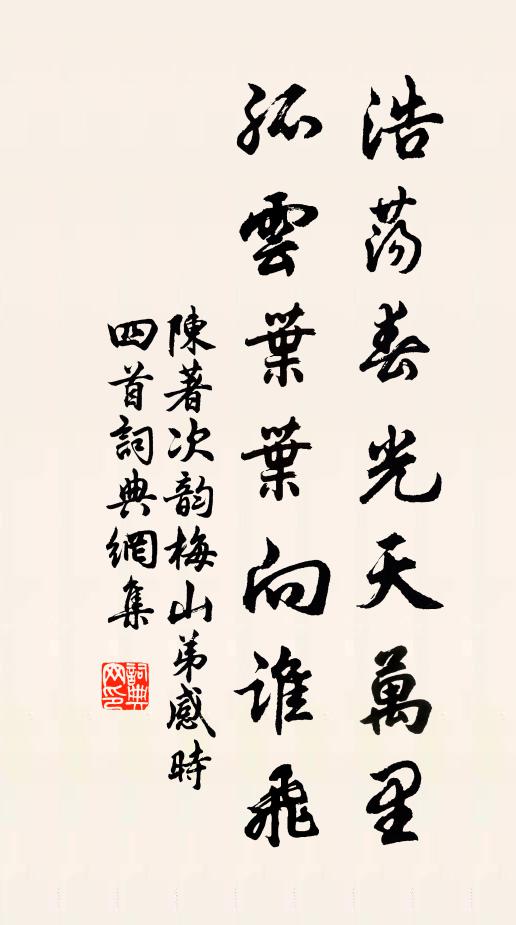 浩蕩春光天萬里
孤雲葉葉向誰飛
陳著次韵梅山弟感時
四首詞典網集
詞典網印